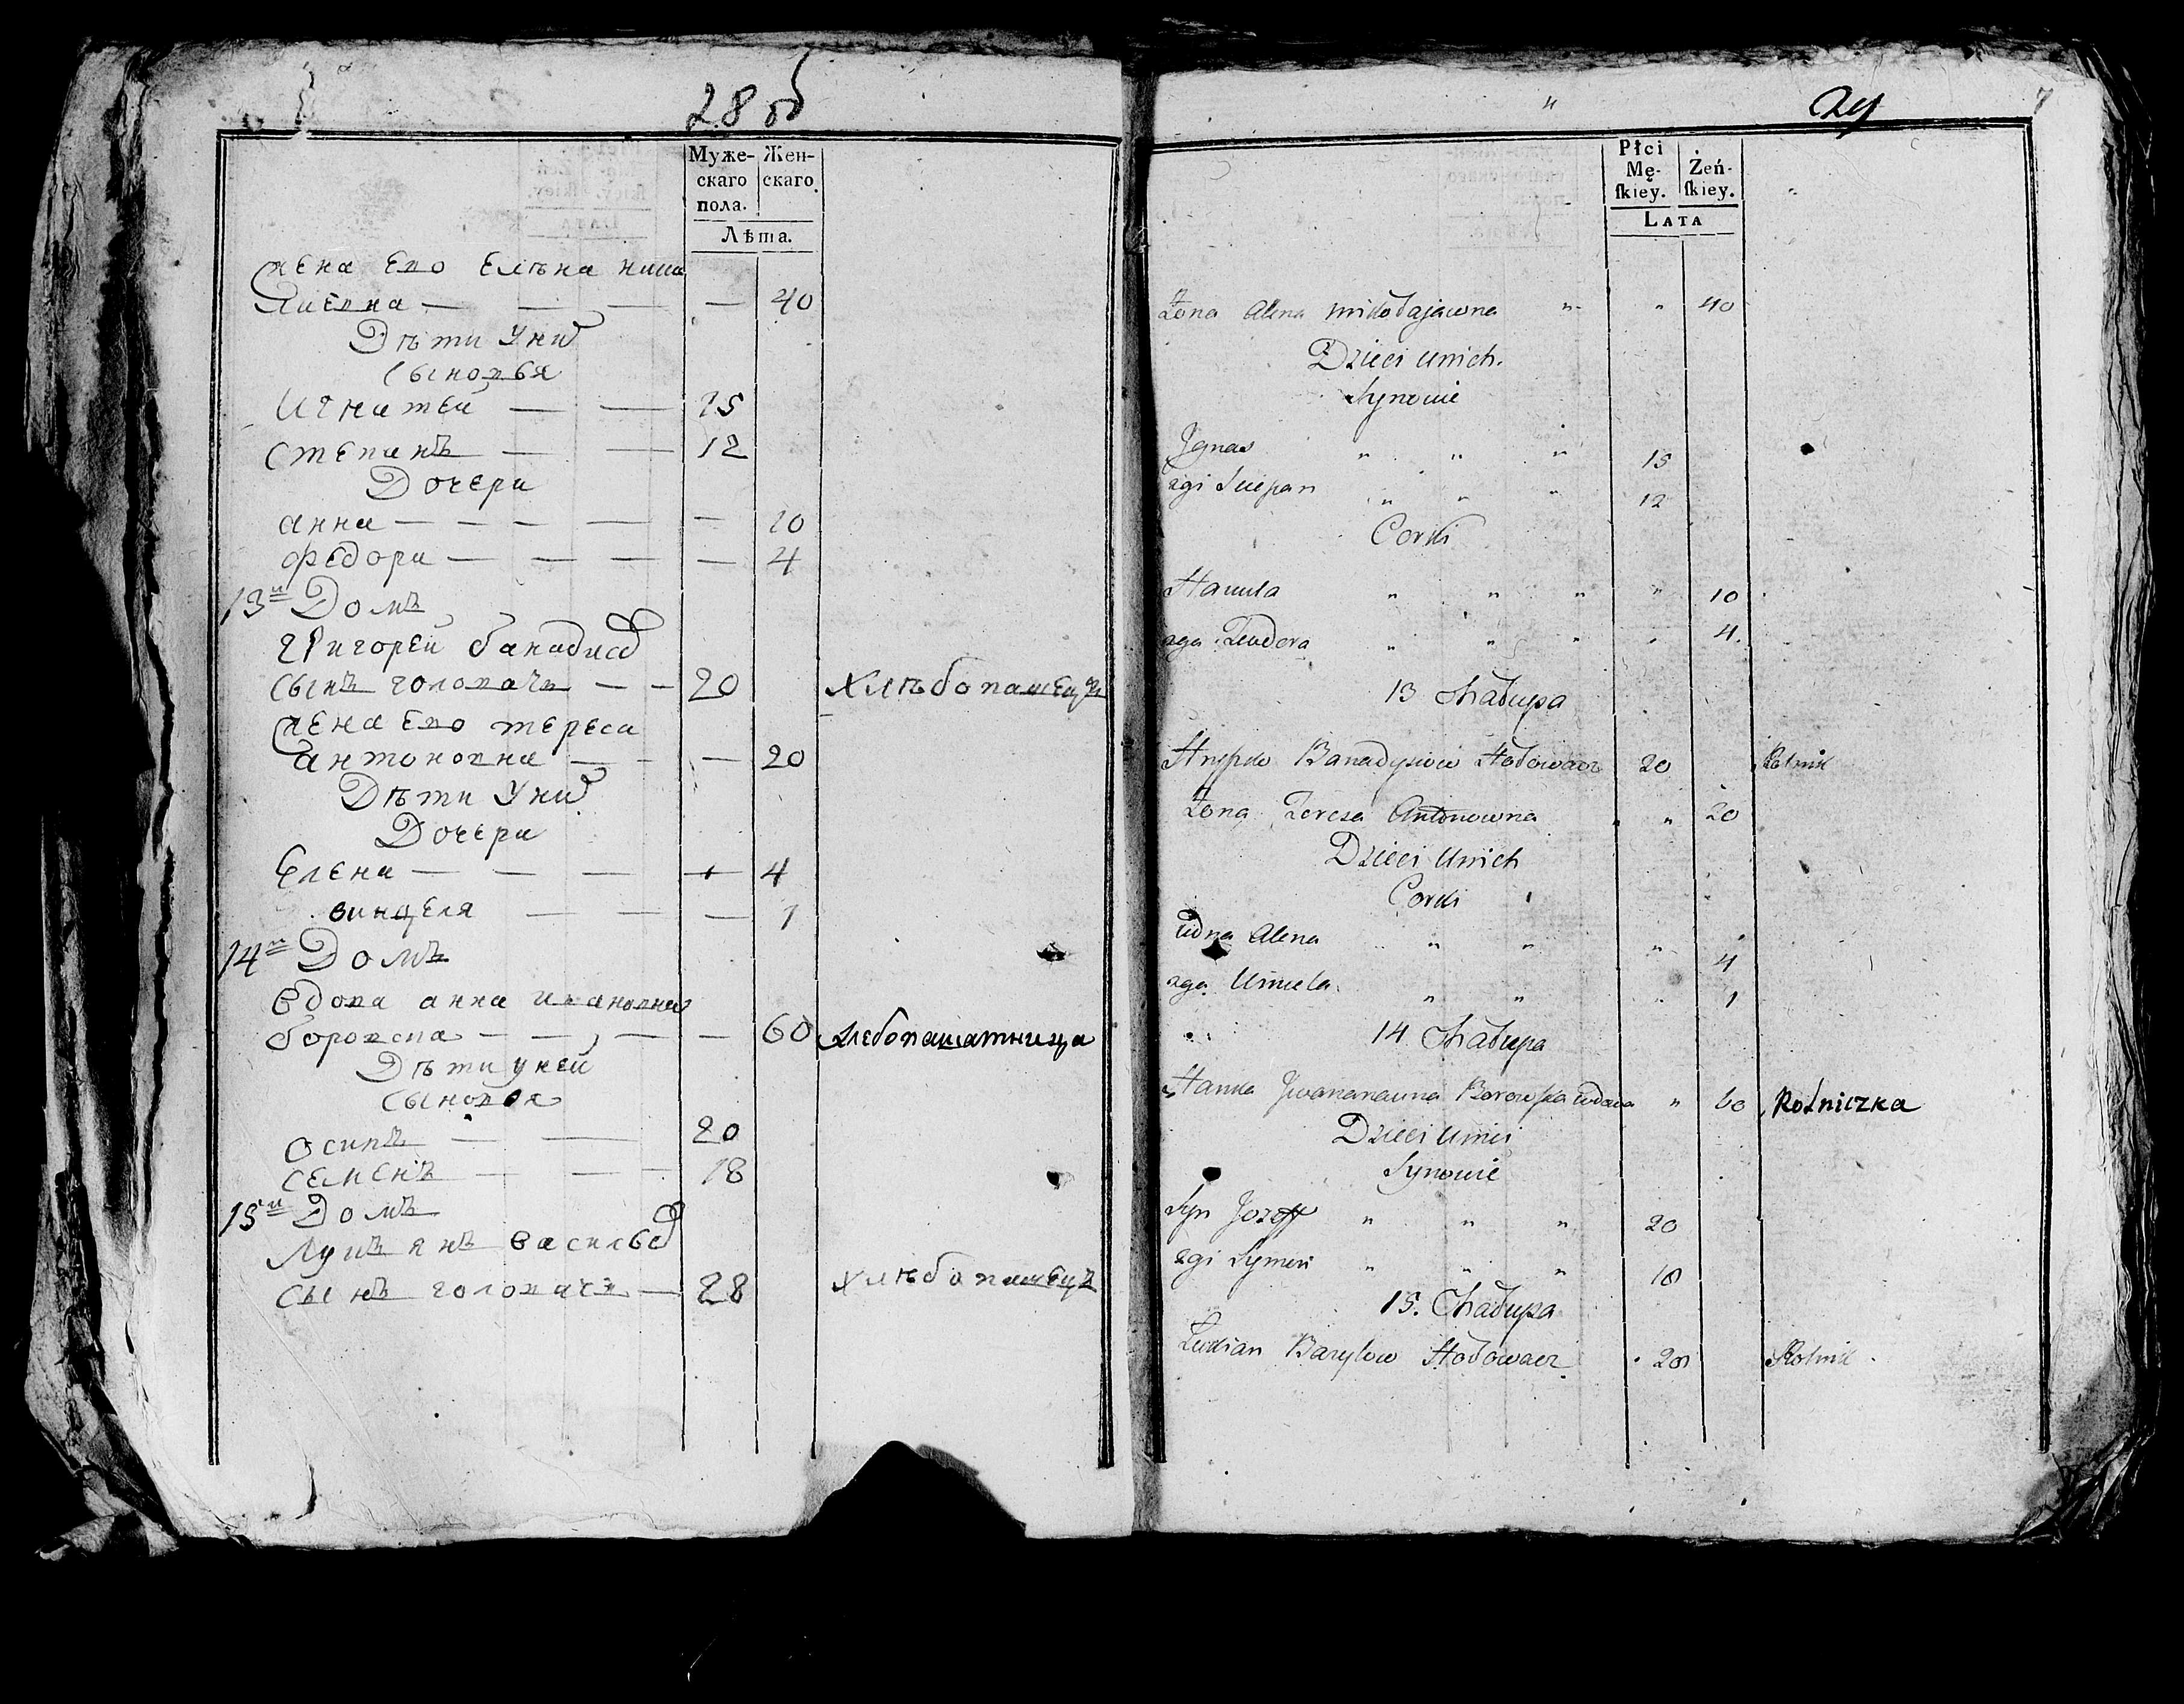 28 об
Муже-
скаго
пола.
Жен-
скаго
Лѣта.
жена Его Елѣна нико
лаевна — — — — 40
Дѣти у них
Сыновья
Игнатей — — 15
степанъ — — 12
Дочери
анна — — — — — 10
федора — — — — 4
13й Домъ
григорей банадис
сынъ головачъ — — 20 Хлѣбопашецъ
жена Его тереса
антоновна — — — 20
Дѣти у них
Дочери
Елена — — — — 4
винцеля — — — 1
14й Домъ
вдова анна ивановна
боровска — — — — 60 хлебопашатница
Дѣти у ней
Сыновья
осипъ — — 20
семенъ — — — 18
15й Домъ
Лукъянъ васильев
сынъ головачъ — 28 Хлѣбопашецъ
29
7
Płci
Mę-
ſkiey.
Żeń-
ſkiey.
LATA
Żona Alena mikołajawna " " 40
Dzieci unich.
Synowie
Jgnas " " " 15
2gi Sciepan " " " 12
Corki
Hanula " " " " 10
2ga Teodora " " " " 4.
13 Chałupa
Hrypko Banadysiow Hołowacz 20 Rolnik
Żona Teresa Antonowna " " 20
Dzieci Unich
Corki
iedna Alena " " " 4
2ga Uincela " " " 1
14 Chałupa
Hanka Jwananauna Borowska wdowa " 60 Rolniczka
Dzieci Uniey
Synowie
Syn Jozeff " " " 20
2gi Symon " " " 18
15. Chałupa
Łukian Bazylow Hołowacz 28 Rolnik